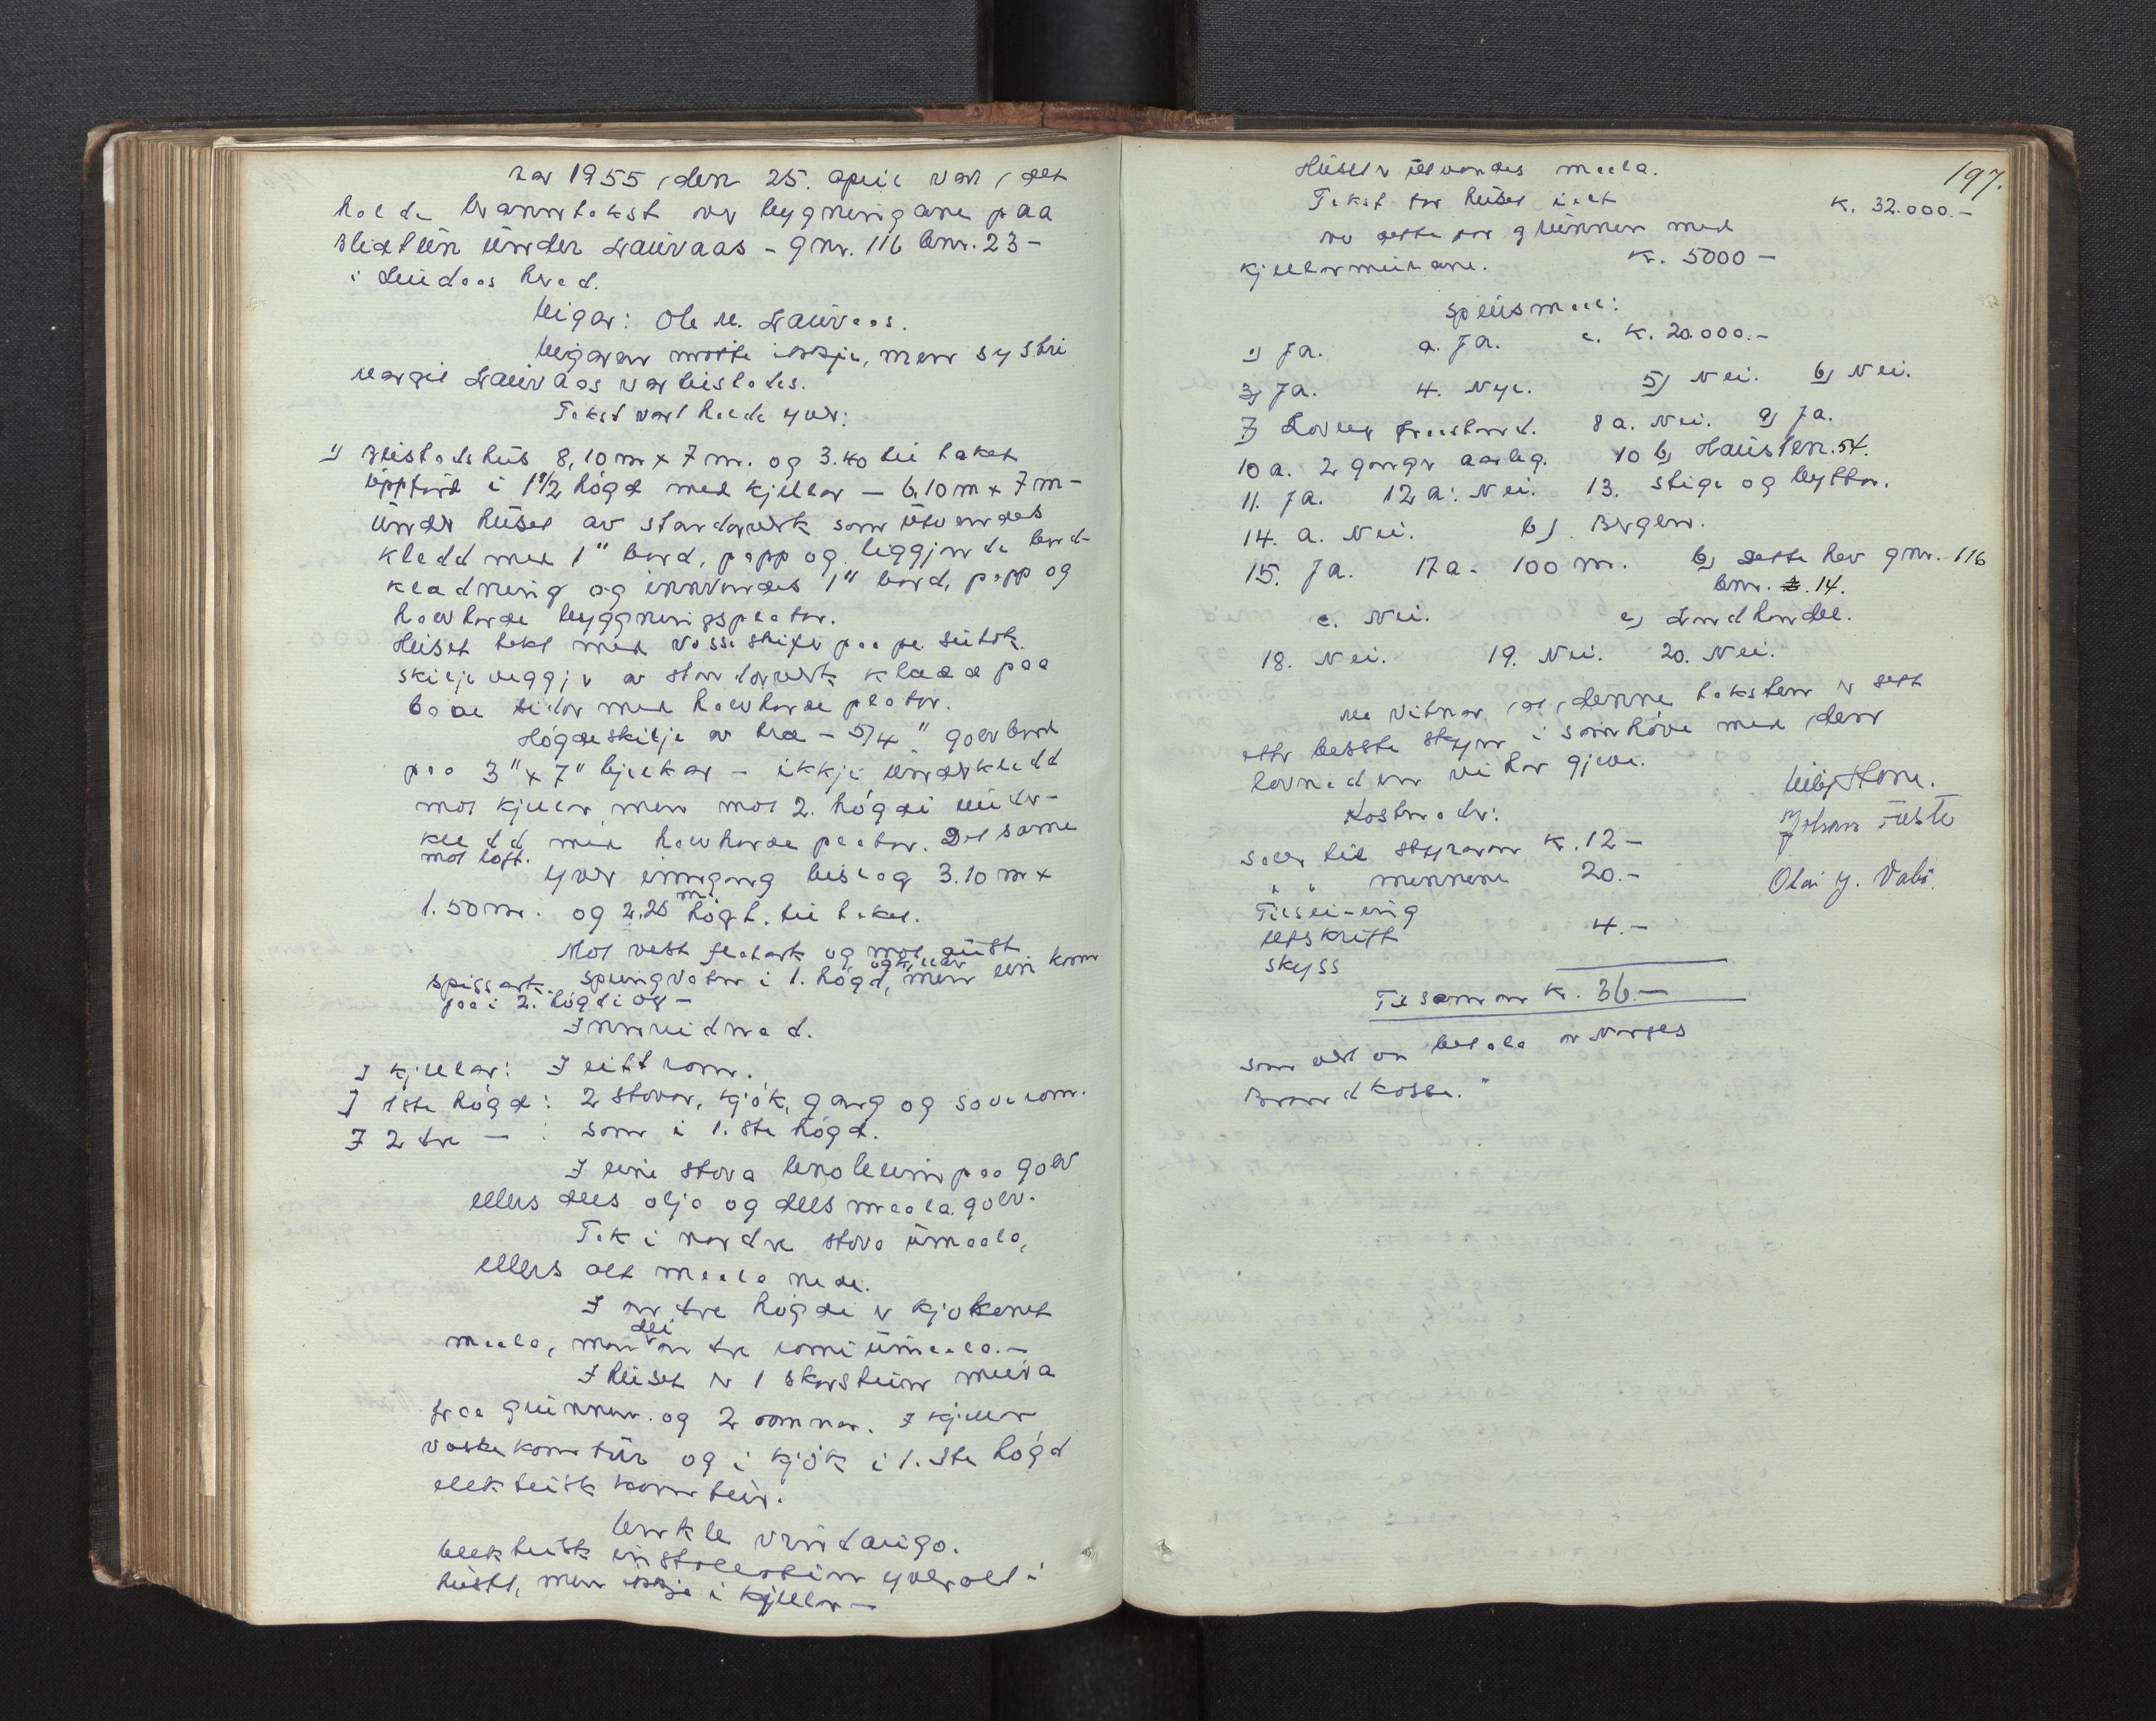 Aar 1955 den 25. april vart det
halde branntakst over bygningane paa
under Lauvaas - gnr. 116 bnr. 23 -
i Lindaas herad.
Eigar: Ole M. Lauvaas.
Eigaren møtte ikkje, men systri
Margit Lauvaas var tilstades.
Takst vart halde yver:
1) Vistadshus 8,10 m x 7 m. og 3.40 til taket
uppførd i 1 1/2 høgd med kjellar - 6.10 m x 7 m -
under huset av standarverk som utvendes
kledd med 1" bord, papp og liggjande bord-
kladning og innvendes 1" bord, papp og
halvharde byggningsplator.
Huset tekt med Vosseskifer paa pl. sutak.
Skiljeveggjer av standarverk kledde paa
baae sidor med halvharde plator.
Høgdeskilje av tre - 5/4" golvbord
paa 3" x 7" bjelkar - ikkje underkledd
mot kjellar, men mot 2. høgdi under-
kledd med halvharde plator. Det same
mot loft.
Yver inngang bislag 3.10 m x
1.50 m. og 2,25 m høgt. til taket.
Mot vest flatark og mot aust
spissark. Springvatn i 1. høgd, og kjellar men ein kran
paa i 2. høgdi og -
Innreidnad.
I kjellar: I eitt rom.
I 1ste høgd: 2 stovor, kjøk, gang og soverom.
I 2dre - : som i 1.ste høgd.
I eine stova linoleum paa golv
ellers dels olja og dels maala golv.
Tak i nordre stova umaala,
ellers alt maala nede.
I andre høgdi er kjøkenet
maala, men dei andre romi umaala. -
I huset er 1 skorstein mura
fraa grunnen. og 2 omnar. I kjellar
vaskekomfür og i kjøk i 1.ste høgd
elektrisk komfür.
Enkle vindaugo.
Elektrisk installasjon yveralt i
huset, men ikkje i kjellar -
197.
Huset er utvendes maala.
Takst for huset i alt K. 32.000.-
av dette for grunnen med
kjellarmurane. Kr. 5000 -
Spursmaal:
1) Ja. a. Ja. c. K. 20.000.-
3) Ja. 4. Nye. 5) Nei. 6) Nei.
7) Lovleg tilstand. 8 a. Nei. 9) Ja.
10 a. 2 gonger aarleg. 10 b) Hausten. 54.
11. Ja. 12 a: Nei. 13. Stige og byttor.
14. a. Nei. b) Bergen.
15. Ja. 17 a. 100 m. b) Dette hev gnr. 116
bnr. 14.
c. Nei. e) Landhandel.
18. Nei. 19. Nei. 20. Nei.
Me vitnar at denne taksten er sett
etter besste skjyn i samhøve med den
lovnaden vi har gjeve.
Kostnader:
Saler til styraren K. 12 -
" " mennene 20.-
Tilsei-ing
Utskrift 4.-
Skyss
Tilsaman kr. 36.-
som vert aa betala av Norges
Brandkasse."
Johan
Olai J. Vabø.